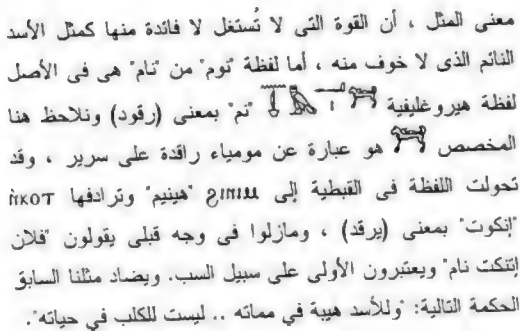 معنى المثل ، أن القوة التى لا تُستغل لا فائدة منها كمثل الأسد
النائم الذى لا خوف منه ، أما لفظة "نوم" من "نام" هى فى الأصل
لفظة هيروغليفية "نم" بمعنى (رقود) ونلاحظ هنا
المخصص هو عبارة عن مومياء راقدة على سرير ، وقد
تحولت اللفظة فى القبطية إلى ϩⲓⲛⲓⲙ "هينيم" وترادفها ⲛ̀ⲕⲟⲧ
"إنكوت" بمعنى (يرقد) ، ومازلوا فى وجه قبلى يقولون "فلان
إتنكت نام" ويعتبرون الأولى على سبيل السب. ويضاد مثلنا السابق
الحكمة التالية: "وللأسد هيبة في مماته .. ليست للكلب في حياته".